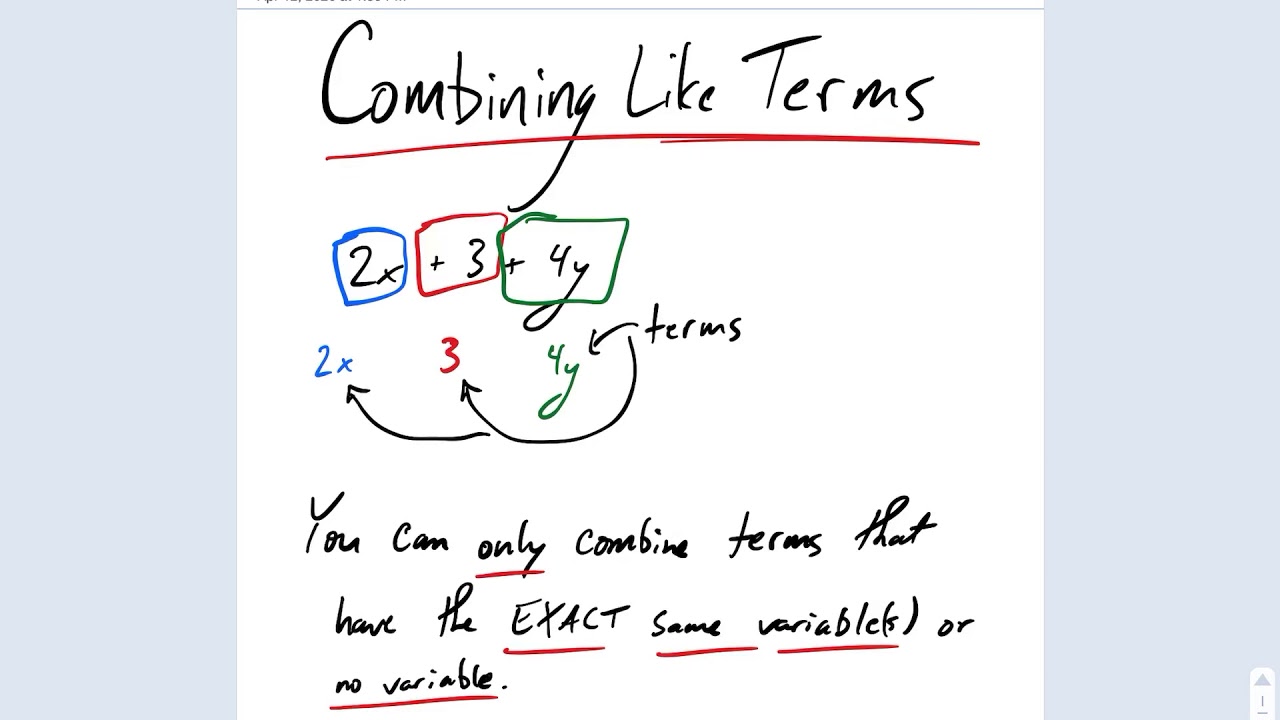 Combining Like Terms
2x + 3 + 4y
terms
2x 3 4y
You can only combine terms that
have the EXACT same variable(s) or
no variable.